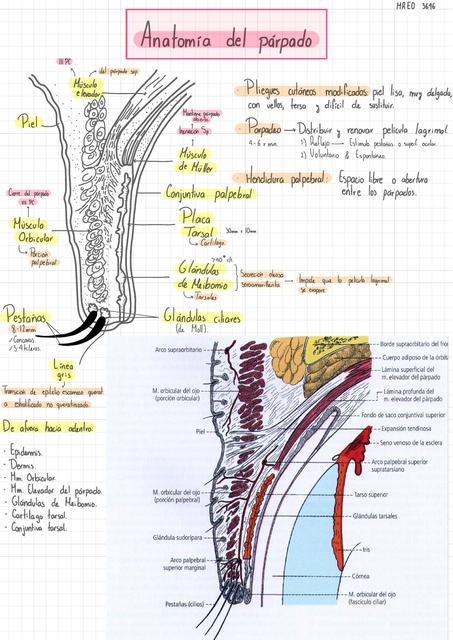 MREO 3696
Anatomía del párpado
III PC
del párpado sup.
Músculo
elevador
Piel
Mantiene párpado
abierto
Inervación Sp
Músculo
de Müller
Conjuntiva palpebral
Cierre del párpado
VII PC
Músculo
Orbicular
Porción
palpebral
Placa
Tarsal
30mm x 10mm
Cartílago
Glándulas
de Meibomio
Tarsales
Secreción oleosa
Impide que la película lagrimal
se evapore
Pestañas
8-12mm
Glándulas ciliares
(de Moll).
Línea
gris
Transición de epitelio escamoso querat.
a estratificado no queratinizado
Pliegues cutáneos modificados: piel lisa, muy delgada,
con vellos, tersa y difícil de sustituir.
Parpadeo → Distribuir y renovar película lagrimal.
1) Reflejo → Estímulo pestañas o superf. ocular.
2) Voluntario & Espontáneo
Hendidura palpebral: Espacio libre o abertura
entre los párpados.
De afuera hacia adentro:
- Epidermis.
- Dermis.
- Mm. Orbicular.
- Mm. Elevador del párpado.
- Glándulas de Meibomio.
- Cartílago tarsal.
- Conjuntiva tarsal.
Arco supraorbitario
M. orbicular del ojo
(porción orbicular)
Piel
M. orbicular del ojo
(porción palpebral)
Glándula sudorípara
Arco palpebral
superior marginal
Pestañas (cilios)
Borde supraorbitario del fron
Cuerpo adiposo de la órbita
Lámina superficial del
m. elevador del párpado
Lámina profunda del
m. elevador del párpado
Fondo de saco conjuntival superior
Expansión tendinosa
Seno venoso de la esclera
Arco palpebral superior
supratarsiano
Tarso superior
Glándulas tarsales
Iris
Córnea
M. orbicular del ojo
(fascículo ciliar)